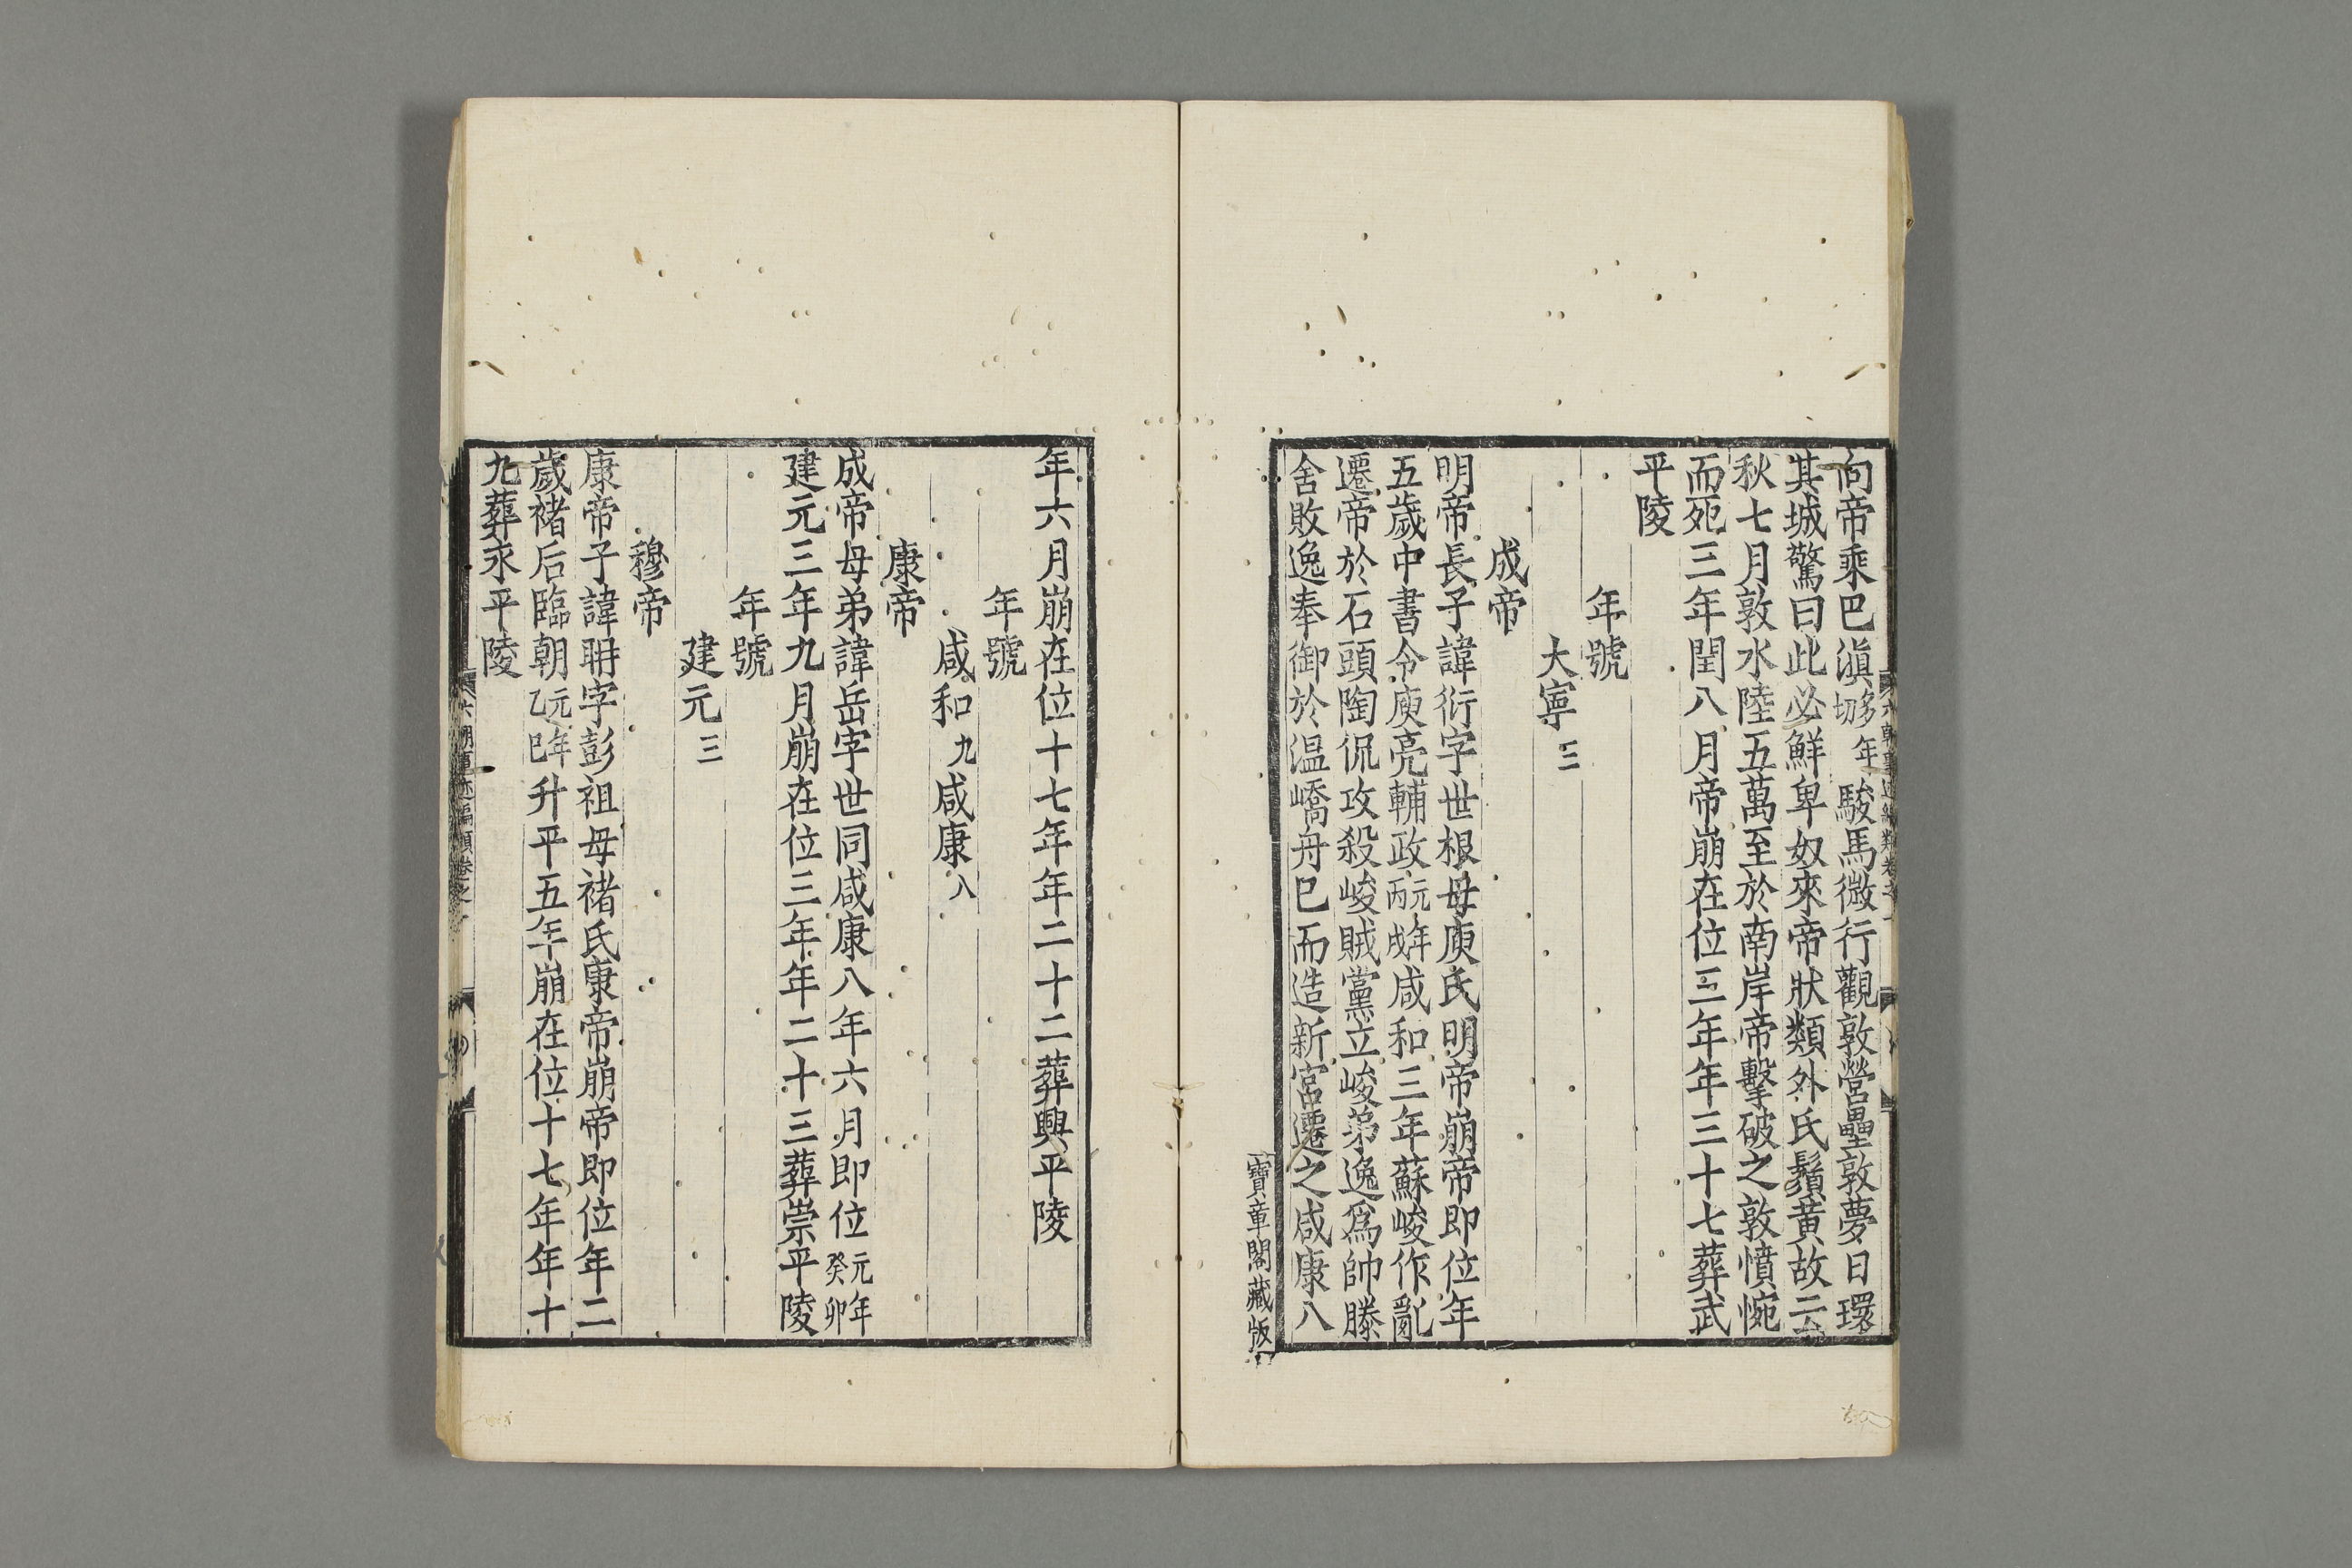 向帝乘巴滇移年切駿馬微行觀敦營壘敦夢日環
其城驚曰此必鮮卑奴來帝狀類外氏鬚黃故云
秋七月敦水陸五萬至於南岸帝擊破之敦憤惋
而死三年閏八月帝崩在位三年年三十七葬武
平陵
年號
大寧三
成帝
明帝長子諱衍字世根母庾氏明帝崩帝即位年
五歲中書令庾亮輔政元年丙戌咸和三年蘇峻作亂
遷帝於石頭陶侃攻殺峻賊黨立峻弟逸為帥滕
舍敗逸奉御於温嶠舟已而造新宮遷之咸康八
寶章閣藏版
年六月崩在位十七年年二十二葬興平陵
年號
咸和九咸康八
康帝
成帝母弟諱岳字世同咸康八年六月即位元年癸卯
建元三年九月崩在位三年年二十三葬崇平陵
年號
建元三
穆帝
康帝子諱聃字彭祖母褚氏康帝崩帝即位年二
歲褚后臨朝元年乙巳升平五年崩在位十七年年十
九葬永平陵
六朝事迹編類卷之